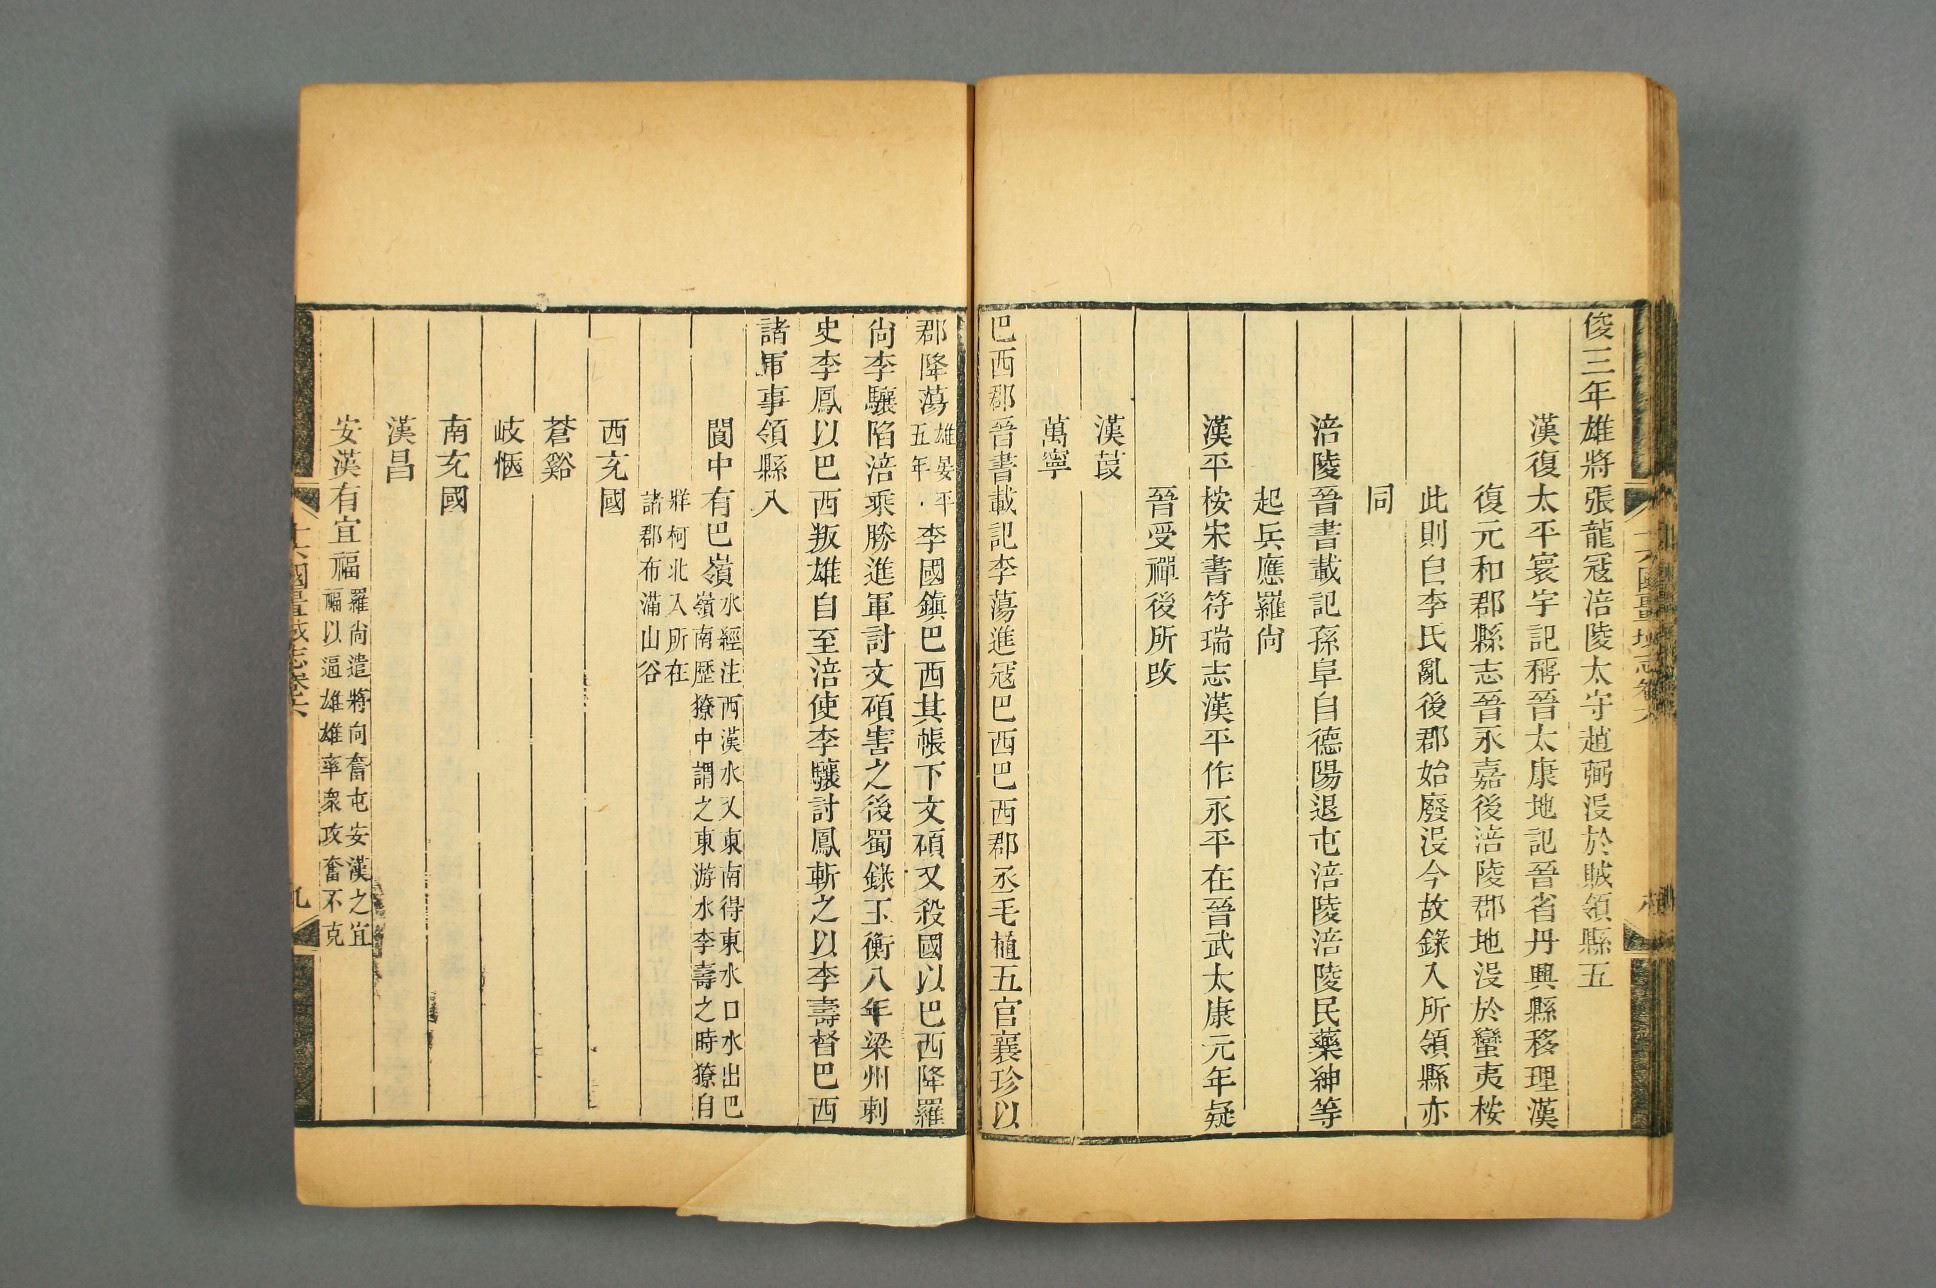 俊三年雄將張龍冦涪陵太守趙弼没於賊領縣五
漢復太平寰宇記稱晉太康地記晉省丹興縣移理漢
復元和郡縣志晉永嘉後涪陵郡地没於蠻夷桉
此則自李氏亂後郡始廢没今故錄入所領縣亦
同
涪陵晉書載記孫阜自德陽退屯涪陵涪陵民藥紳等
起兵應羅尙
漢平桉宋書符瑞志漢平作永平在晉武太康元年疑
晉受禪後所攺
漢葭
萬寧
巴西郡晉書載記李蕩進冦巴西巴西郡丞毛植五官襄珍以
郡降蕩雄晏平五年李國鎮巴西其帳下文碩又殺國以巴西降羅
尙李驤陷涪乘勝進軍討文碩害之後蜀錄玉衡八年梁州刺
史李鳳以巴西叛雄自至涪使李驤討鳳斬之以李壽督巴西
諸軍事領縣八
閬中有巴嶺水經注西漢水又東南得東水口水出巴
嶺南歷獠中謂之東游水李壽之時獠自
牂柯北入所在
諸郡布滿山谷
西充國
蒼谿
岐愜
南充國
漢昌
安漢有宜福羅尙遣將向奮屯安漢之宜
福以逼雄雄率衆攻奮不克
十六國疆域志卷六
九